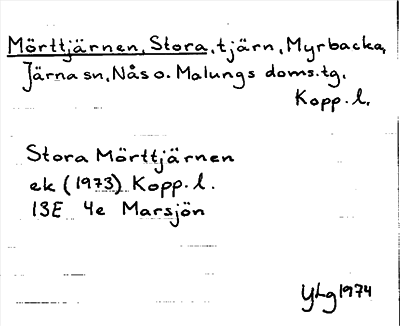 Mörttjärnen, Stora, tjärn, Myrbacka,
Järna sn, Nås o. Malungs doms.tg,
Kopp. l.
Stora Mörttjärnen
ek (1973) Kopp. l.
13E 4e Marsjön
YLg 1974